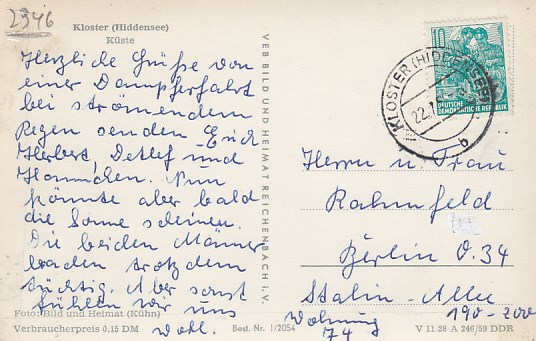 2346
Kloster (Hiddensee)
Küste
Herzliche Grüße von
einer Dampferfahrt
bei strömendem
Regen senden Erich
Herbert, Detlef und
Hannchen. Nun
könnte aber bald
die Sonne scheinen.
Die beiden Männer
baden trotzdem
tüchtig. Aber sonst
fühlen wir uns
wohl.
Foto: Bild und Heimat (Kühn)
Verbraucherpreis 0,15 DM
Best. Nr. 1/2054
VEB BILD UND HEIMAT REICHENBACH I. V.
10
DEUTSCHE
DEMOKRATISCHE REPUBLIK
KLOSTER (HIDDENSEE)
22.
b
Herrn u. Frau
Rahnfeld
Berlin O. 34
Stalin-Allee
190-200
Wohnung
74
V 11 28 A 246/59 DDR